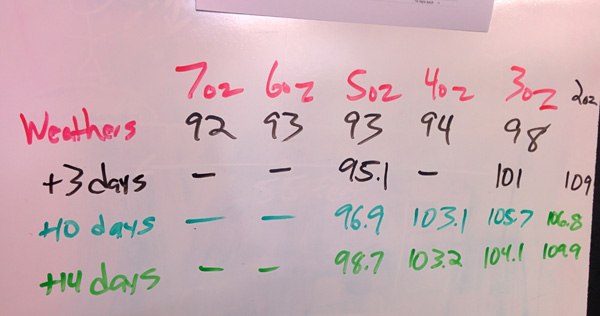 7oz 6oz 5oz 4oz 3oz 2oz
Weathers 92 93 93 94 98
+3 days - - 95.1 - 101 109
+10 days - - 96.9 103.1 105.7 106.8
+14 days - - 98.7 103.2 104.1 109.9